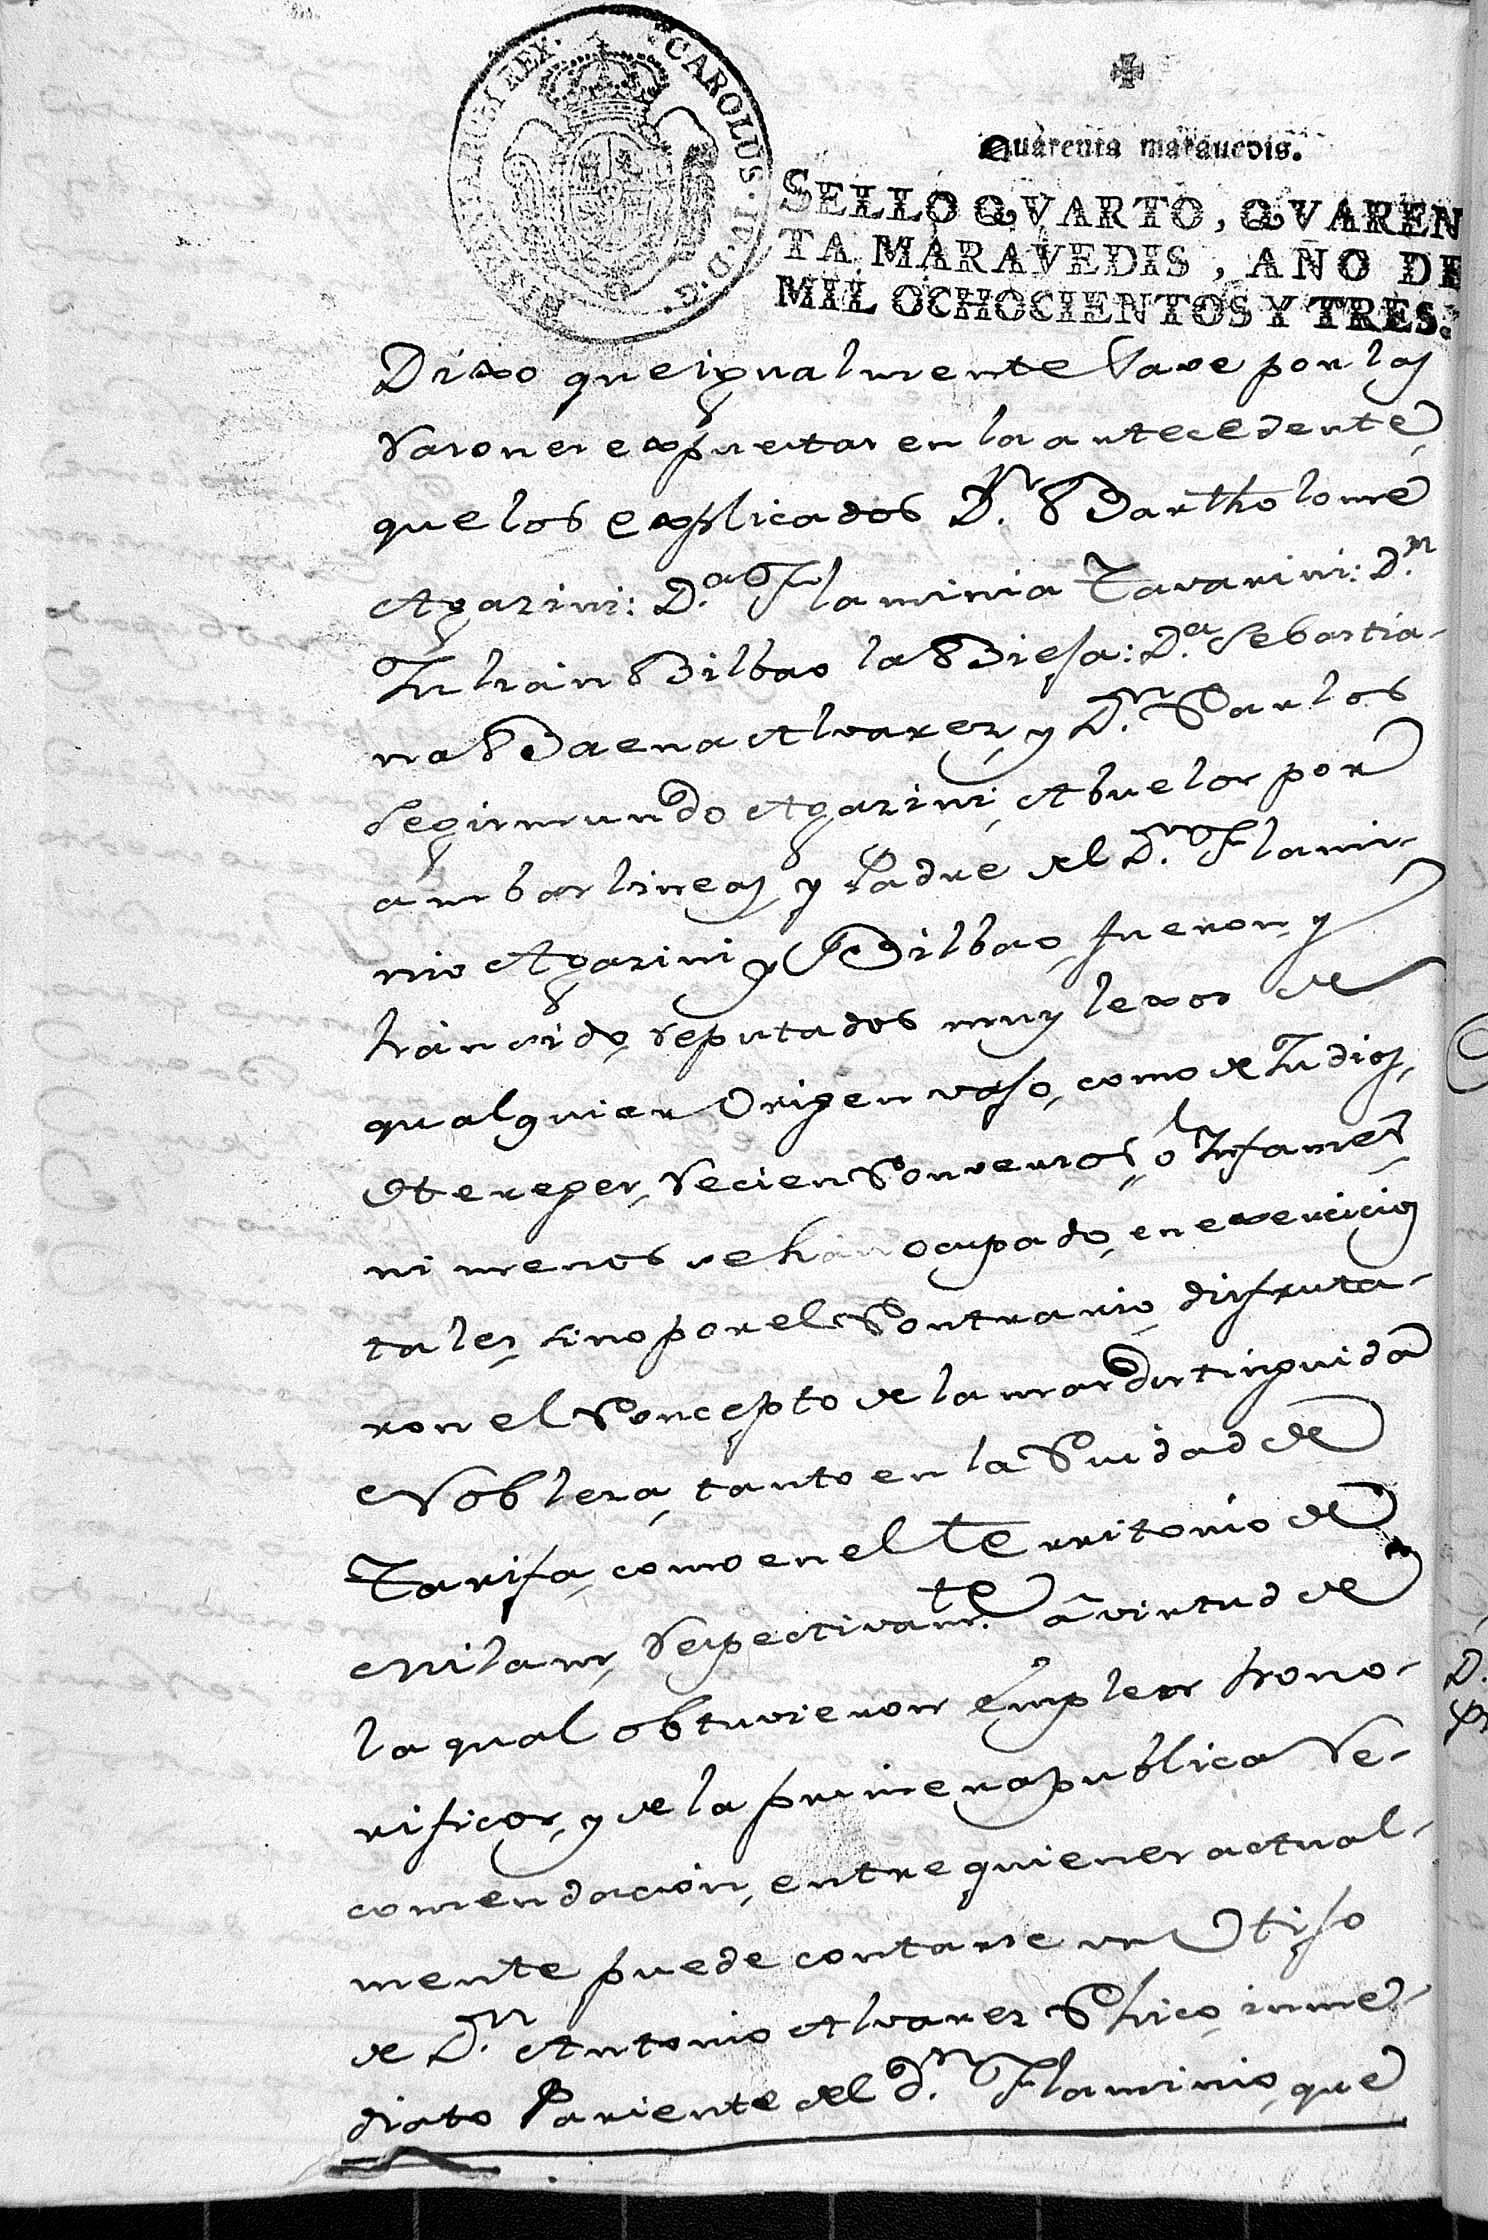 CAROLUS·IV·D·G·
HISPANIARUM REX·
Quarenta maravedis.
SELLO QVARTO, QVAREN
TA MARAVEDIS, AÑO DE
MIL OCHOCIENTOS Y TRES.
Dixo que igualmente save por las
razones expuestas en la antecedente
que los explicados D.n Bartholomé
Agazini: D.a Flaminia Tavarini: D.n
Julián Bilbao la Biefa: D.a Sebastia-
na Baena Alvarez, y D.n Carlos
Segismundo Agazini, Abuelos por
ambas lineas, y Padre del D.n Flami-
nio Agazini y Bilbao, fueron, y
hán sido, reputados muy lexos de
qualquier Origen vaso, como de Judios,
Ereges, recien Conversos, ó Infames,
ni menos se hán ocupado, en exercicios
tales, sino por el Contrario, disfruta-
ron el Concepto de la mas distinguida
Nobleza, tanto en la Ciudad de
Tarifa, como en el territorio de
Milam, respectivam.te á virtud de
la qual obtuvieron empleos hono-
rificos, y de la primera publica re-
comendación, entre quienes actual-
mente puede contarse un tifo
de D.n Antonio Alvarez Chico, inme-
diato Pariente del D.n Flaminio, que